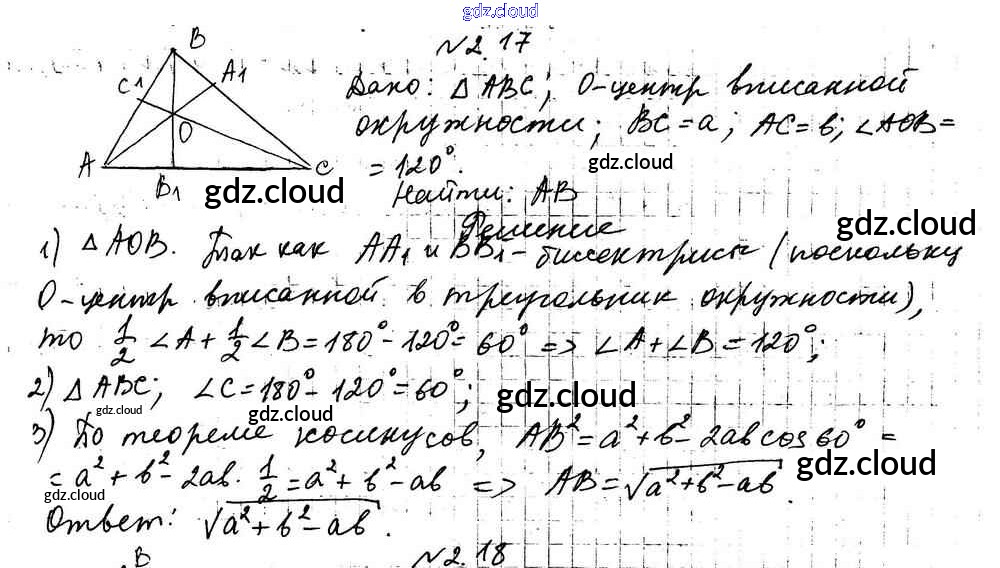 gdz.cloud
№2.17
B
C1
A1
O
A
C
B1
Дано: △ABC; O-центр вписанной
окружности; BC=a; AC=b; ∠AOB=
=120°.
gdz.cloud
gdz.cloud
Найти: AB
gdz.cloud
Решение
1) △AOB. Так как AA₁ и BB₁- биссектрисы (поскольку
O-центр вписанной в треугольник окружности),
то 1/2 ∠A + 1/2 ∠B = 180° - 120° = 60° => ∠A + ∠B = 120°;
2) △ABC; ∠C = 180° - 120° = 60°;
gdz.cloud
gdz.cloud
gdz.cloud
3) По теореме косинусов, AB² = a² + b² - 2ab cos 60° =
gdz.cloud
= a² + b² - 2ab · 1/2 = a² + b² - ab => AB = √a² + b² - ab.
gdz.cloud
Ответ: √a² + b² - ab.
B
№2.18